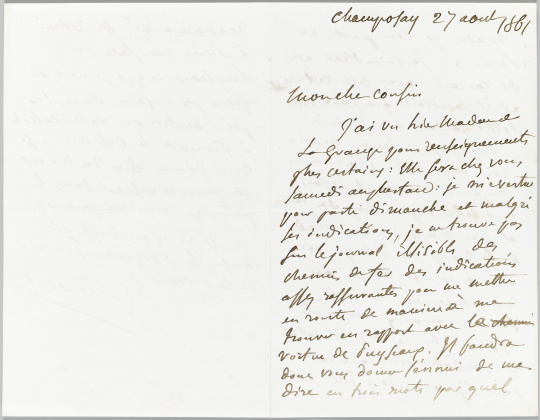 Champrosay 27 aout 1861
Mon cher cousin
J'ai vu hier Madame de
La Grange pour renseignements
plus certains : Elle sera chez vous
samedi au plus tard : je m'évertue
pour partir dimanche et malgré
ses indications, je ne trouve pas
sur le journal illisible des
chemins de fer des indications
assez rassurantes pour me mettre
en route de manière à me
trouver en rapport avec le chemin
voiture de
Il faudra
donc vous donner l'ennui de me
dire en trois mots par quel